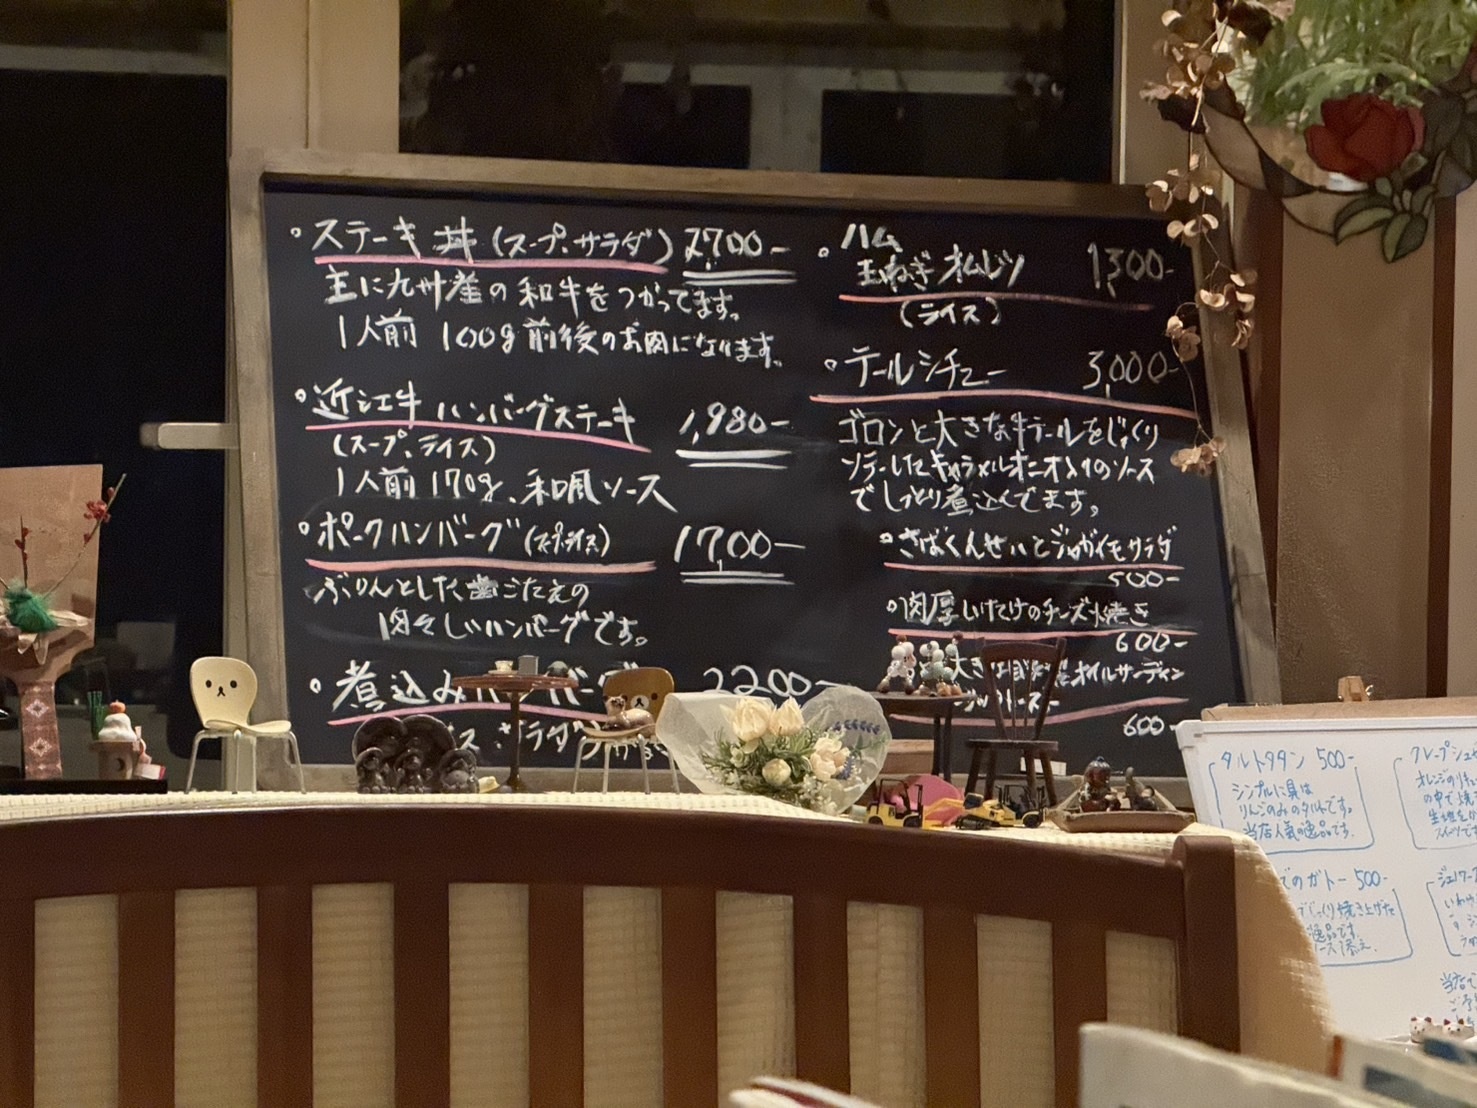 ・ステーキ丼(スープ、サラダ) 2,700-
主に九州産の和牛をつかってます。
1人前 100g前後のお肉になります。
・近江牛 ハンバーグステーキ 1,980-
(スープ、ライス)
1人前170g、和風ソース
・ポークハンバーグ(スープ、ライス) 1,700-
ぷりんとした歯ごたえの
肉々しいハンバーグです。
・煮込みハンバーグ 2200-
サラダ
・ハム
玉ねぎオムレツ 1,300-
(ライス)
・テールシチュー 3,000-
ゴロンと大きな牛テールをじっくり
ソテーしたキャラメルオニオンのソース
でしっとり煮込んでます。
・さばくんせいとジャガイモサラダ
500-
・肉厚しいたけのチーズ焼き
600-
大きな オイルサーディン
600-
タルトタタン 500-
シンプルに具は
りんごのみのタルトです。
当店人気の逸品です。
のガトー 500-
じっくり焼き上げた
逸品です。
ソース添え。
クレープシュ
オレンジの
の中で
生地を
スイーツで
いわゆ
当店で